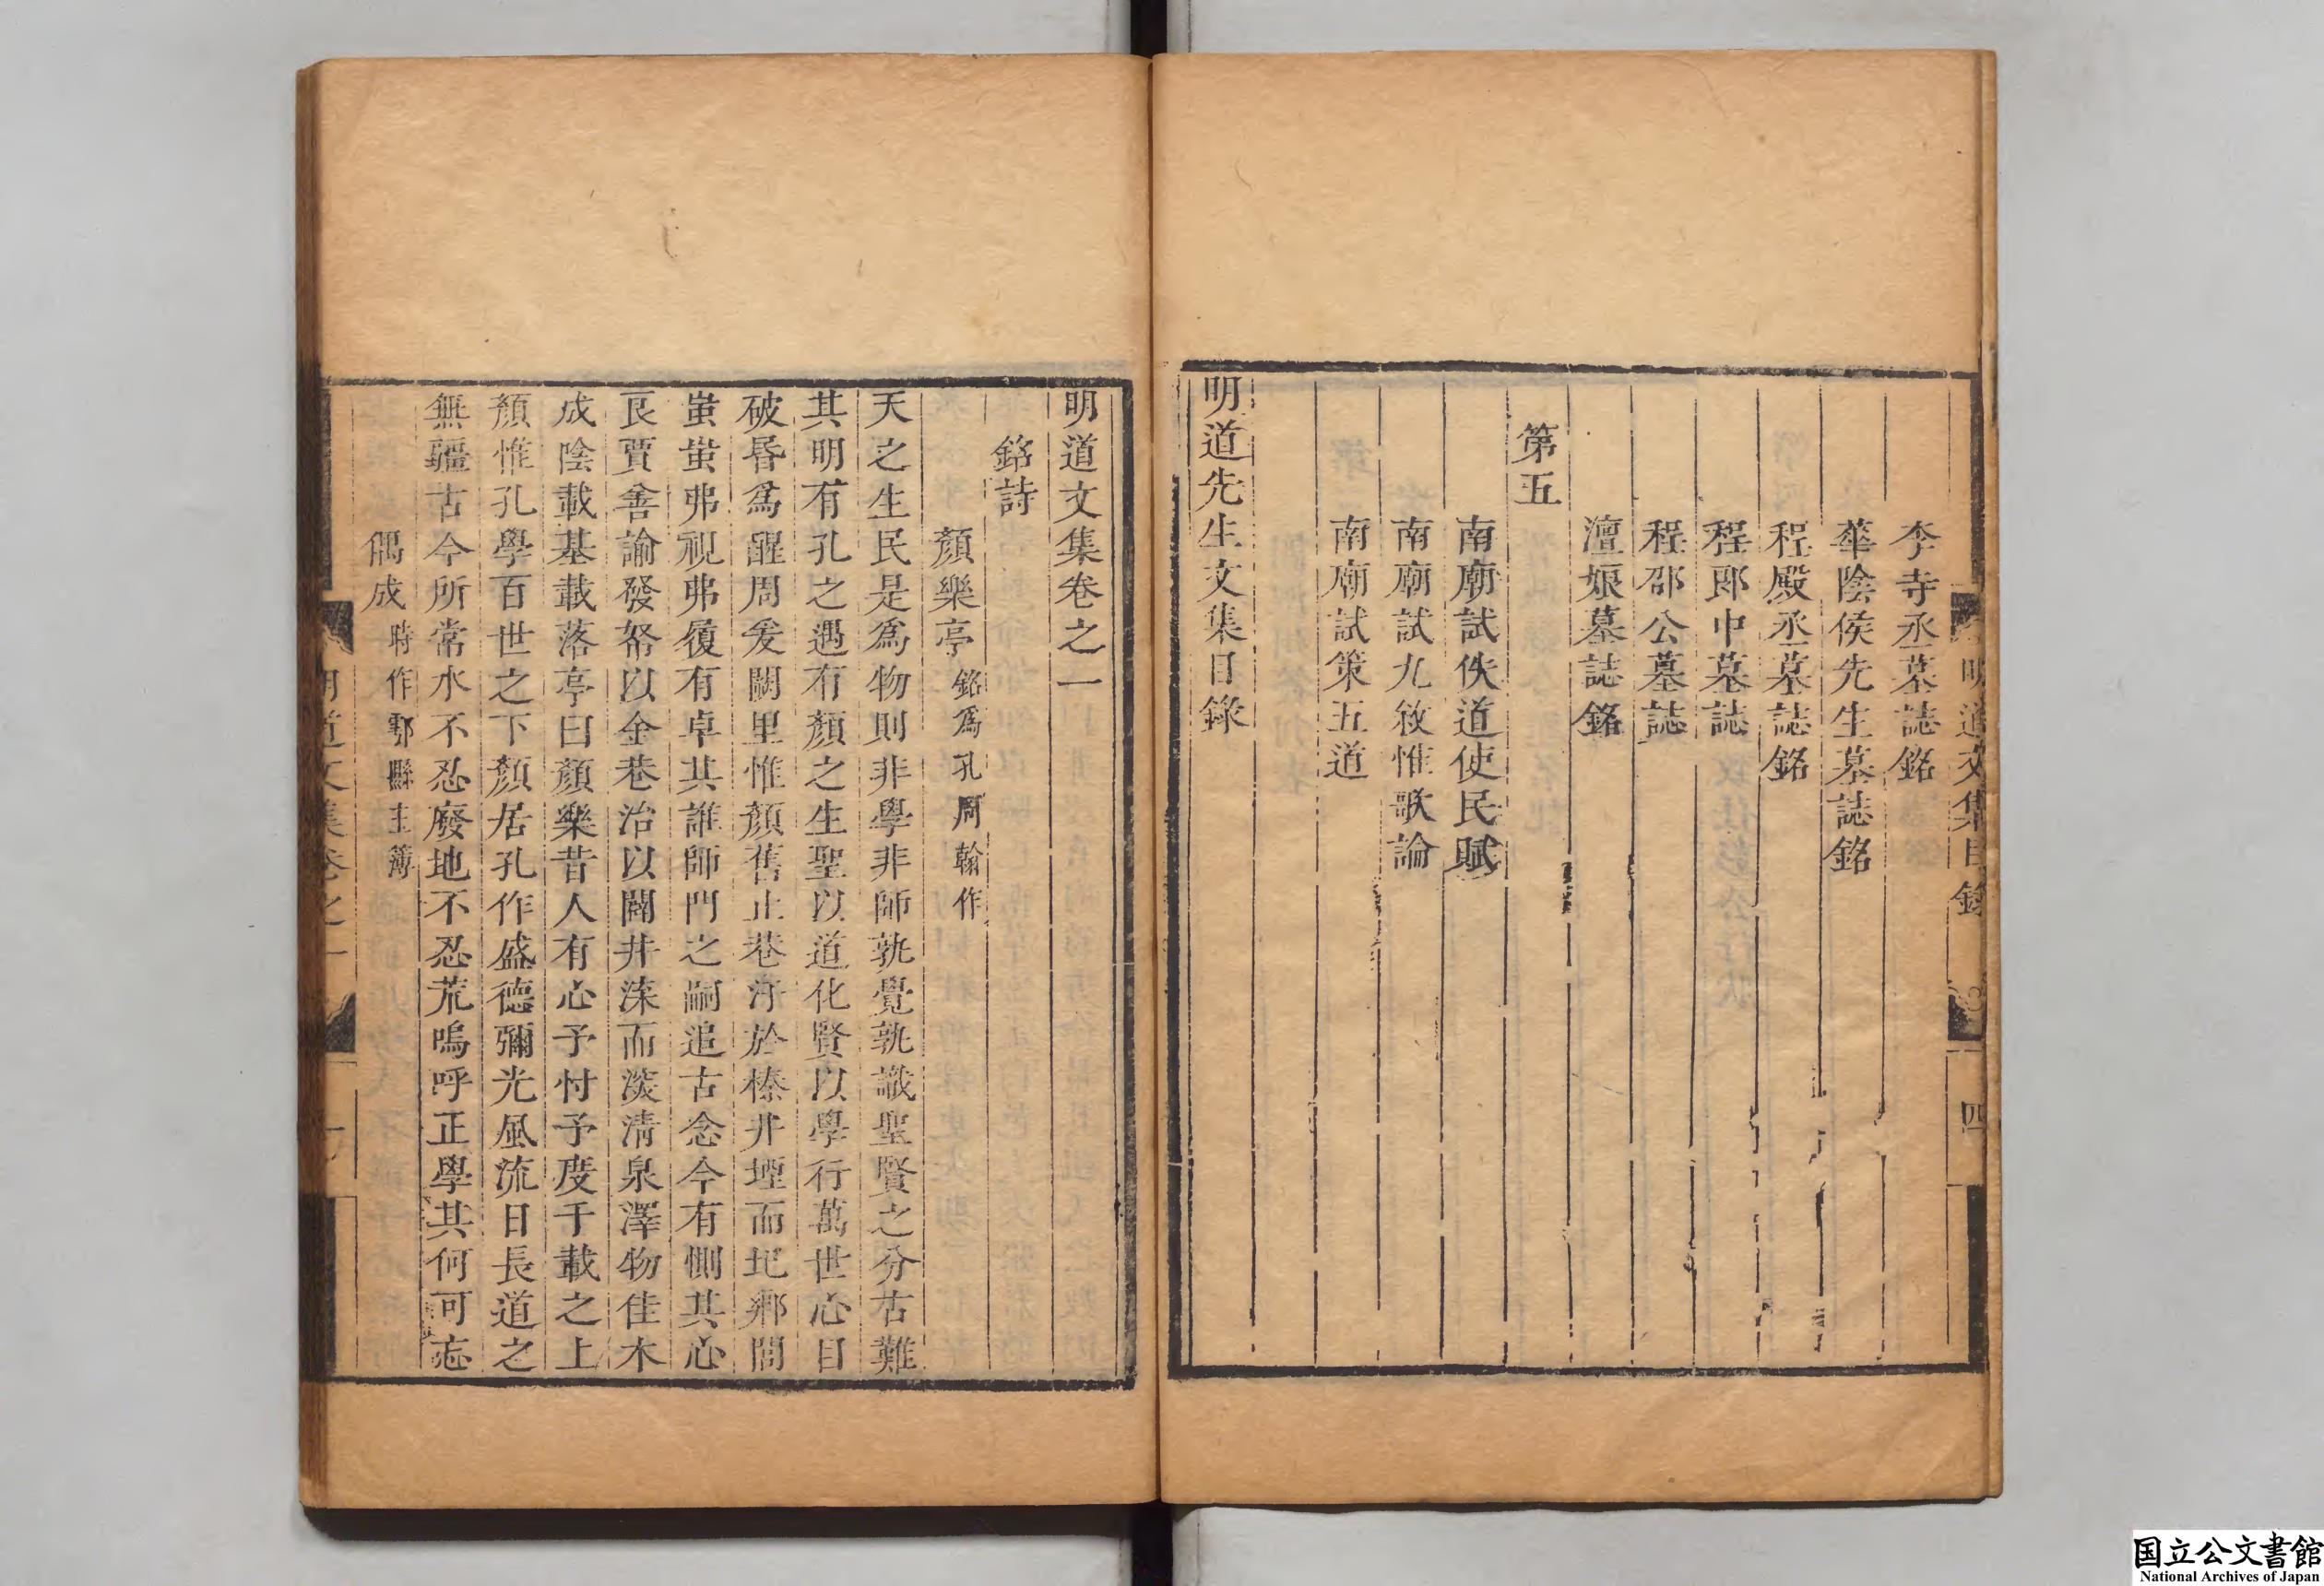 明道文集目錄 四
李寺丞墓誌銘
華陰侯先生墓誌銘
程殿丞墓誌銘
程郎中墓誌
程邵公墓誌
澶娘墓誌銘
第五
南廟試佚道使民賦
南廟試九敘惟歌論
南廟試策五道
明道先生文集目錄
明道文集卷之一
銘詩
顏樂亭銘爲孔周翰作
天之生民是爲物則非學非師孰覺孰識聖賢之分古難
其明有孔之遇有顏之生聖以道化賢以學行萬世心目
破昏爲醒周爰闕里惟顏舊止巷汙於榛井堙而圮鄉閭
蚩蚩弗視弗履有卓其誰師門之嗣追古念今有惻其心
良賈善諭發帑以金巷治以闢井渫而淡清泉澤物佳木
成陰載基載落亭曰顏樂昔人有心予忖予度千載之上
顏惟孔學百世之下顏居孔作盛德彌光風流日長道之
無疆古今所常水不忍廢地不忍荒嗚呼正學其何可忘
偶成時作鄠縣主簿
明道文集卷之一
国立公文書館
National Archives of Japan